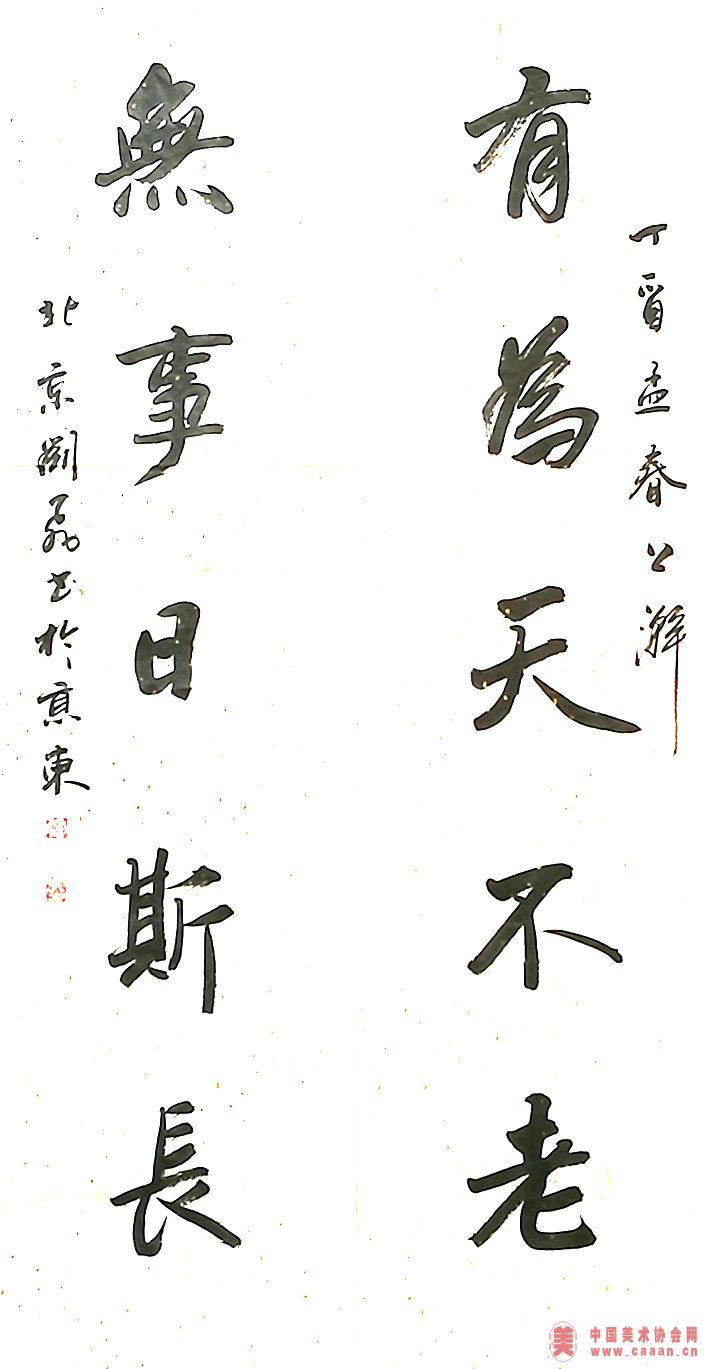 丁酉孟春上澣
有為天不老
無事日斯長
北京劉磊書於京東
中国美术协会网
www.caaan.cn